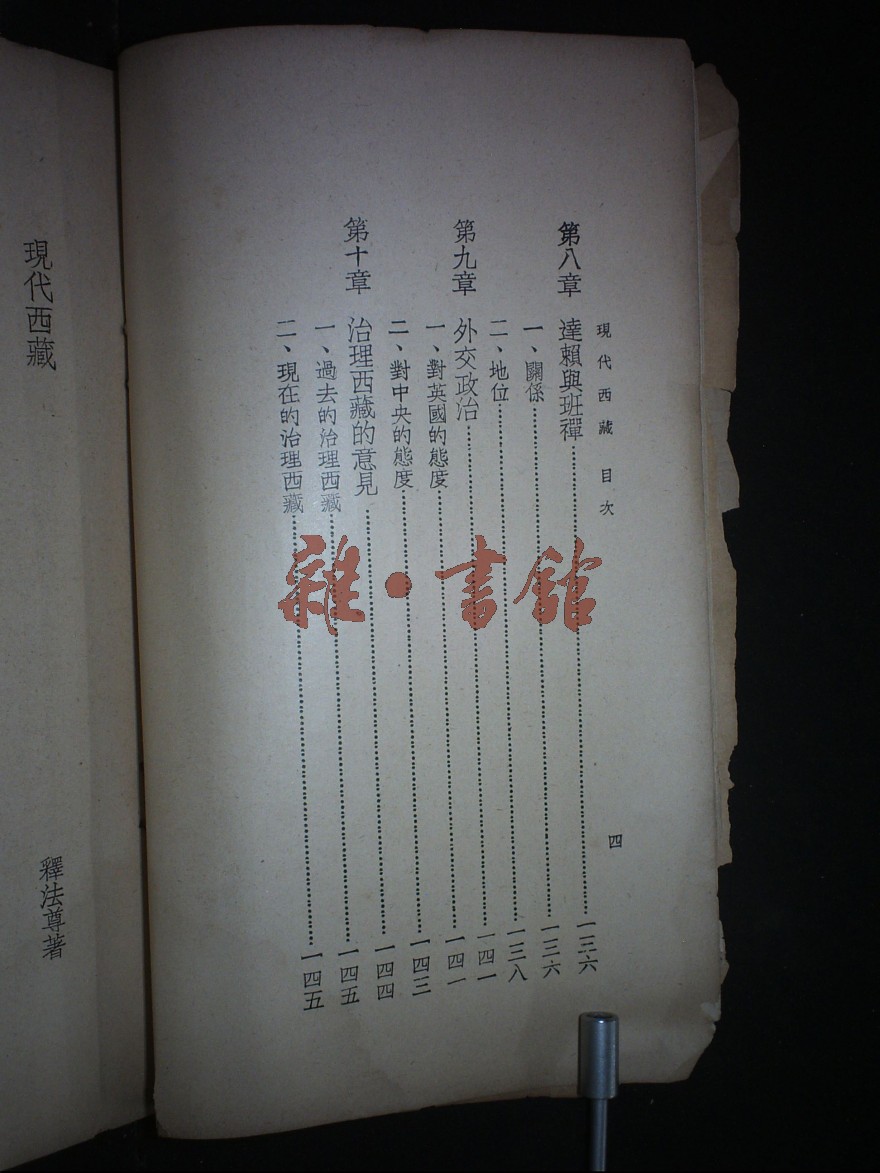 現代西藏 目次
四
第八章 達賴與班禪……一三六
一、關係……一三六
二、地位……一三八
第九章 外交政治……一四一
一、對英國的態度……一四一
二、對中央的態度……一四三
第十章 治理西藏的意見……一四四
一、過去的治理西藏……一四五
二、現在的治理西藏……一四五
雜·書館
現代西藏
釋法尊著